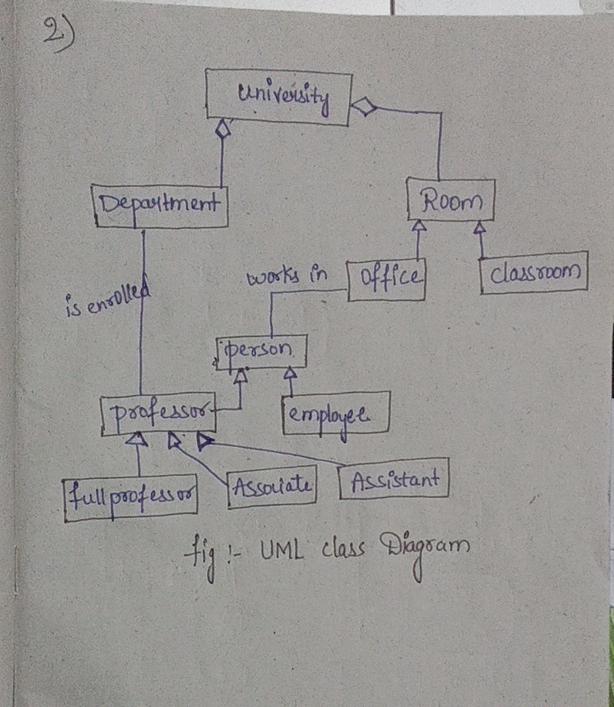 2)
University
Department
Room
works in
office
classroom
is enrolled
person
professor
employee
fullprofessor
Associate
Assistant
fig :- UML class Diagram